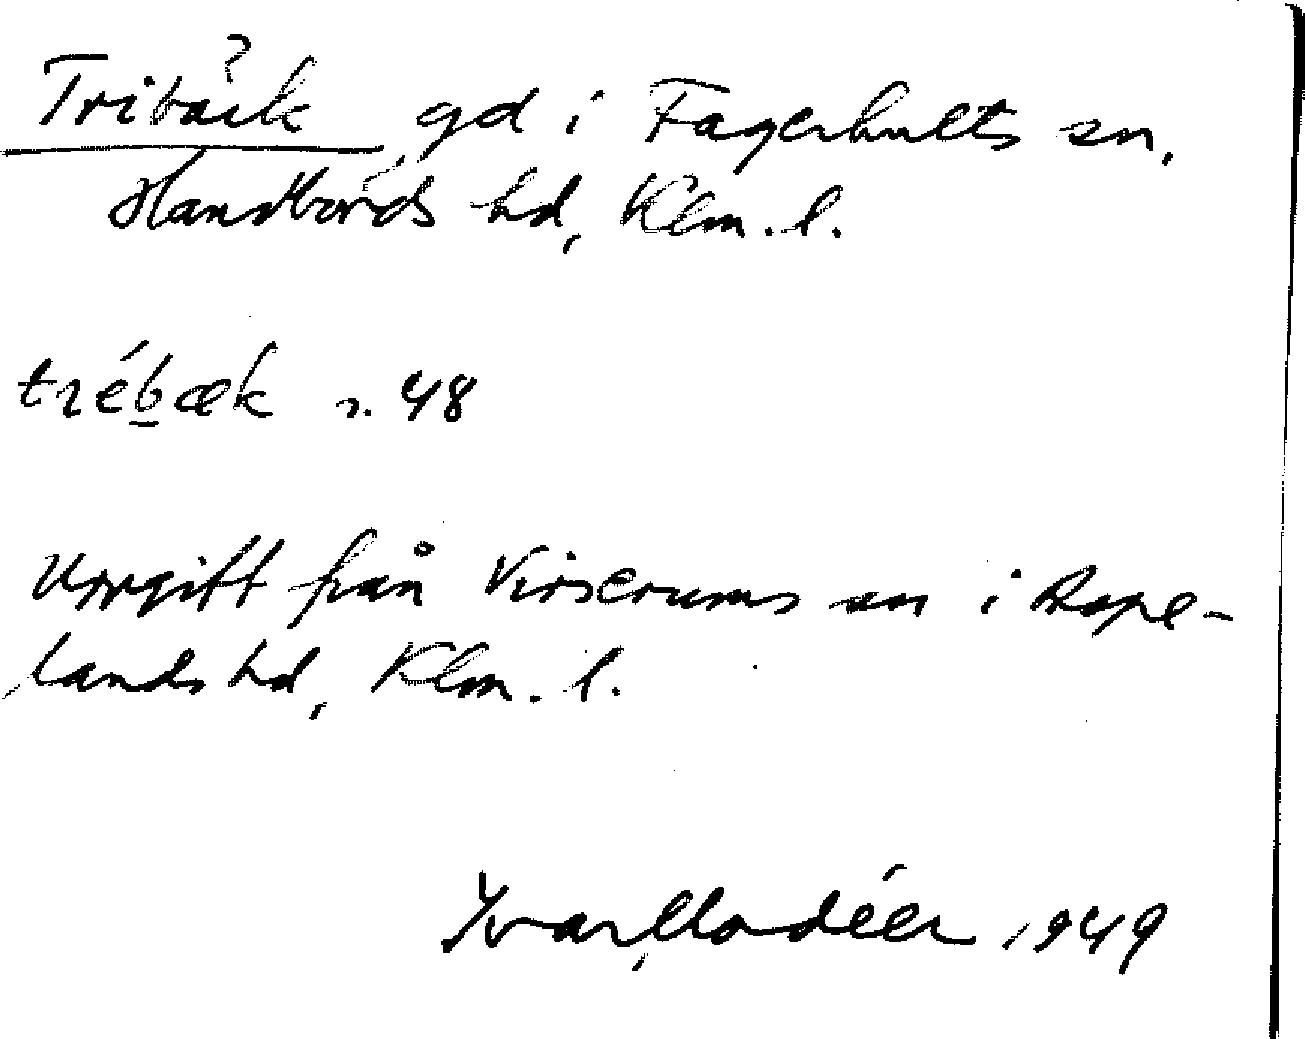 ?
Tribäck, gd i Fagerhults sn,
Handbörds hd, Klm. l.
trébæk r. 48
Uppgift från Virserums sn i Aspe-
lands hd, Klm. l.
Ivar Modéer 1949